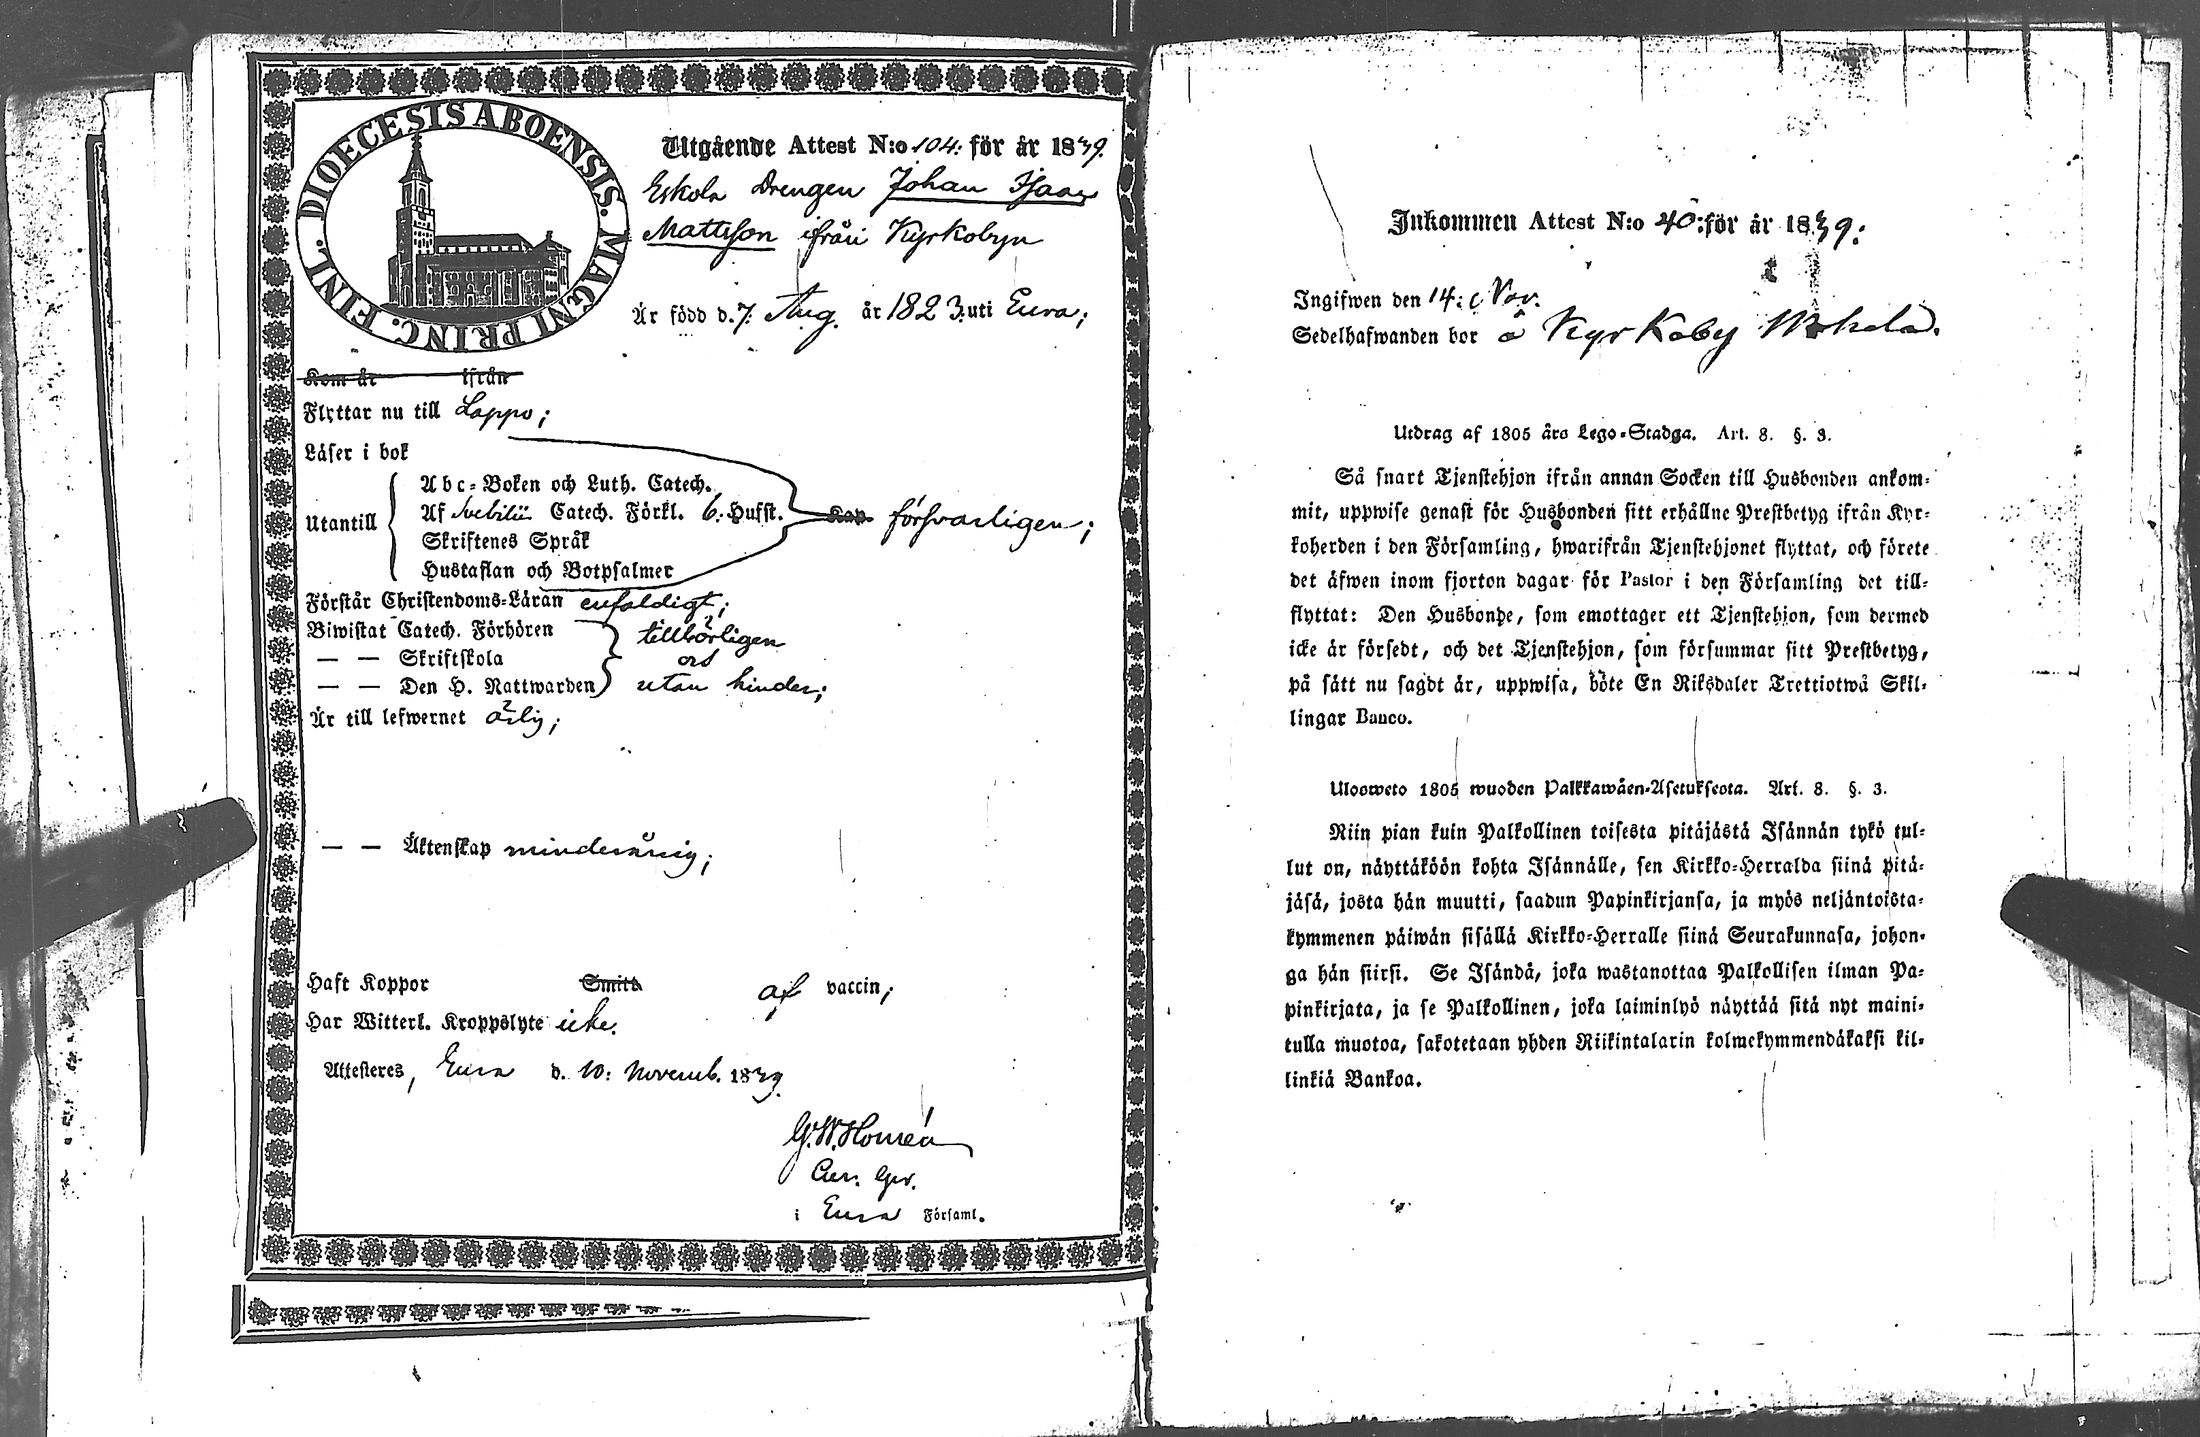 DIOECESIS ABOENSIS. MAGNI PRINC. FINL.
Utgående Attest N:o 104: för år 1839.
Eskola Drengen Johan Isaac
Mattsson ifrån Kyrkobyn
Är född d. 7. Aug. år 1823. uti Eura;
Kom år ifrån
Flyttar nu till Lappo;
Läser i bok
Utantill
Abc-Boken och Luth. Catech.
Af Svebilii Catech. Förkl. 6. Hufst. Kap. försvarligen;
Skriftenes Språk
Hustaflan och Botpsalmer
Förstår Christendoms-Läran enfaldigt;
Biwistat Catech. Förhören tillbörligen
— — Skriftskola och
— — Den H. Nattwarden utan hinder;
Är till lefwernet ärlig;
— — Äktenskap minderårig;
Haft Koppor Smitt. af vaccin;
Har Witterl. Kroppslyte icke.
Attesteres, Eura d. 10: Novemb. 1839.
G. W. Homén
i Eura Församl.
Inkommen Attest N:o 40: för år 1839:
Ingifwen den 14: Nov.
Sedelhafwanden bor å Kyrkoby
Utdrag af 1805 års Lego-Stadga. Art. 8. §. 3.
Så snart Tjenstehjon ifrån annan Socken till Husbonden ankom-
mit, uppwise genast för Husbonden sitt erhållne Prestbetyg ifrån Kyr-
koherden i den Församling, hwarifrån Tjenstehjonet flyttat, och förete
det äfwen inom fjorton dagar för Pastor i den Församling det till-
flyttat: Den Husbonde, som emottager ett Tjenstehjon, som dermed
icke är försedt, och det Tjenstehjon, som försummar sitt Prestbetyg,
på sätt nu sagdt är, uppwisa, böte En Riksdaler Trettiotwå Skil-
lingar Banco.
Uloosweto 1805 wuoden Palkkawäen-Asetuksesta. Art. 8. §. 3.
Niin pian kuin Palkollinen toisesta pitäjästä Isännän tykö tul-
lut on, näyttäköön kohta Isännälle, sen Kirkko-Herralda siinä pitä-
jäsä, josta hän muutti, saadun Papinkirjansa, ja myös neljäntoista-
kymmenen päiwän sisällä Kirkko-Herralle siinä Seurakunnasa, johon-
ga hän siirsi. Se Isändä, joka wastanottaa Palkollisen ilman Pa-
pinkirjata, ja se Palkollinen, joka laiminlyö näyttää sitä nyt maini-
tulla muotoa, sakotetaan yhden Riikintalarin kolmekymmendäkaksi kil-
linkiä Bankoa.